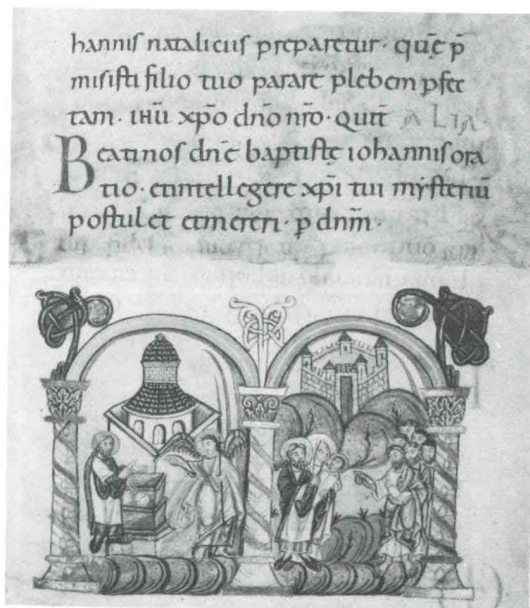 hannis nataliciis preparetur · quę p̄
misisti filio tuo parare plebem pfec
tam · ihū xp̄o dn̄o nr̄o · qui t̄ ALIA ·
Beati nos dn̄e baptistę iohannis ora
tio · et intellegere xp̄i tui mysteriū
postulet et mereri · p dn̄m ·